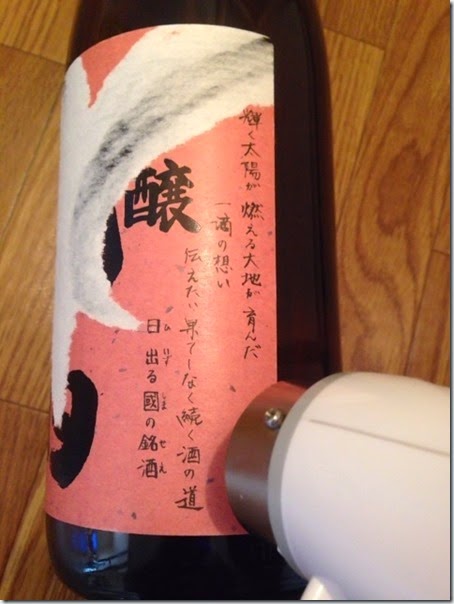 輝く太陽が 燃える大地が 育んだ
一滴の想い
伝えたい 果てしなく続く酒の道
日出る國の銘酒
しま せえ
醸